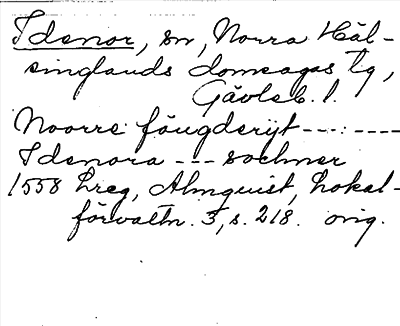 Idenor, sn, Norra Häl-
singlands domsagas tg,
Gävleb. l.
Noorre föugderijt ---:----
Idenora --- sochner
1558 Lreg, Almquist, Lokal-
förvaltn. 3, s. 218. orig.